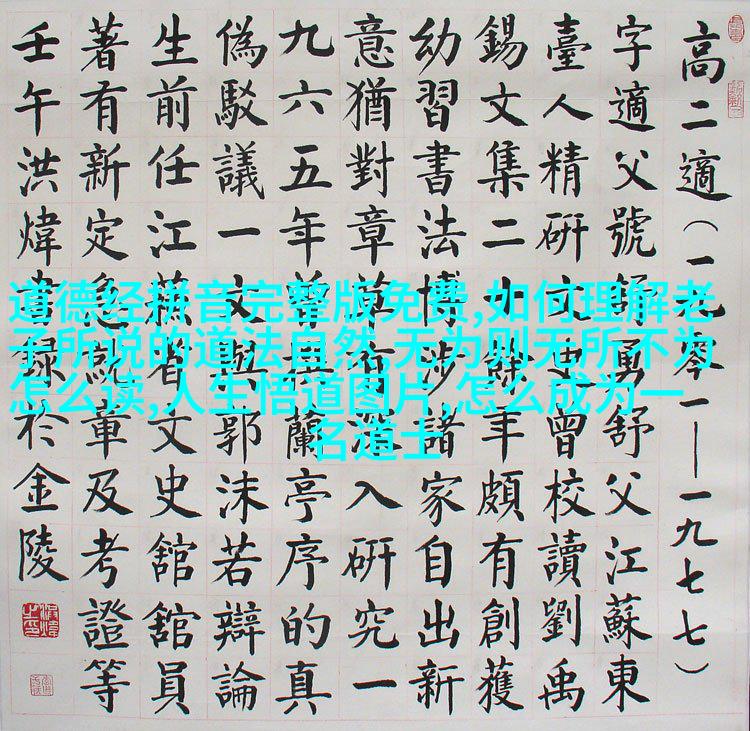 高二適（一九零一—一九七七）
字適父號舒舒父江蘇東
臺人精研文史曾校讀劉禹
錫文集二十餘年頗有創獲
幼習書法博涉諸家自出新
意猶對章草有深入研究一
九六五年曾與蘭亭序的真
偽駁議一文與郭沫若辯論
生前任江蘓省文史舘舘員
著有新定急就章及考證等
壬午洪煒書録於金陵
道德经拼音完整版免费,如何理解老
子所说的道法自然,无为则无所不为
怎么读,人生悟道图片,怎么成为一
名道士